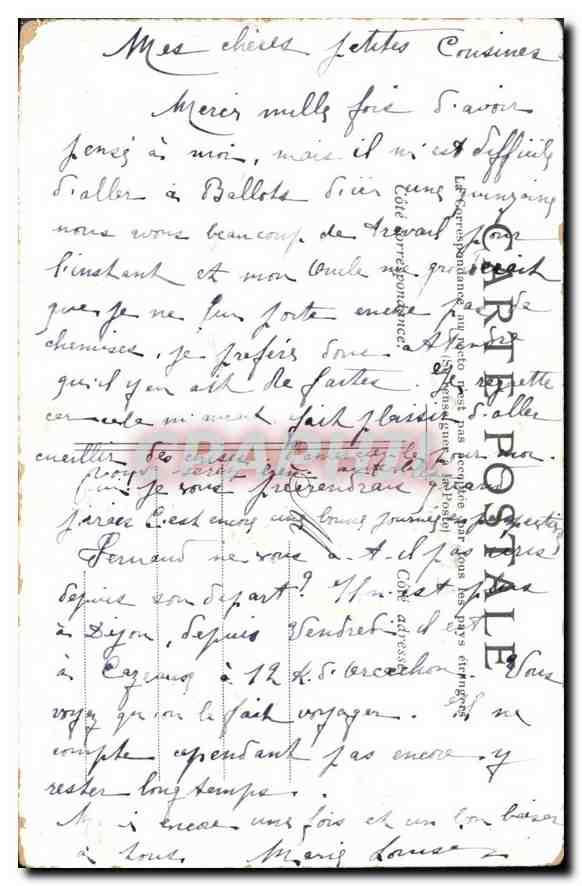 Mes chères petites Cousines
Merci mille fois d'avoir
pensé à moi, mais il m'est difficile
d'aller à Ballots d'ici une quinzaine
nous avons beaucoup de travail pour
l'instant et mon Oncle me
que je ne lui porte encore pas de
chemises, je préfère donc Attendre
qu'il y en ait de faites. Je regrette
car cela m'aurait fait plaisir d'aller
cueillir des cerises.
je vous préviendrais quand
j'irais C'est encore une bonne journée
Fernand ne vous a-t-il pas écris
depuis son départ? Il n'est plus
à Dijon, depuis Vendredi il est
à Cazeaux à 12 K. d'Arcachon. Vous
voyez qu'on le fait voyager. il ne
compte cependant pas encore y
rester longtemps.
encore une fois et un bon baiser
à tous Marie Louise
CARTE POSTALE
La Correspondance au recto n'est pas acceptée par tous les pays étrangers
(Se renseigner à la Poste)
Côté correspondance.
Côté adresse